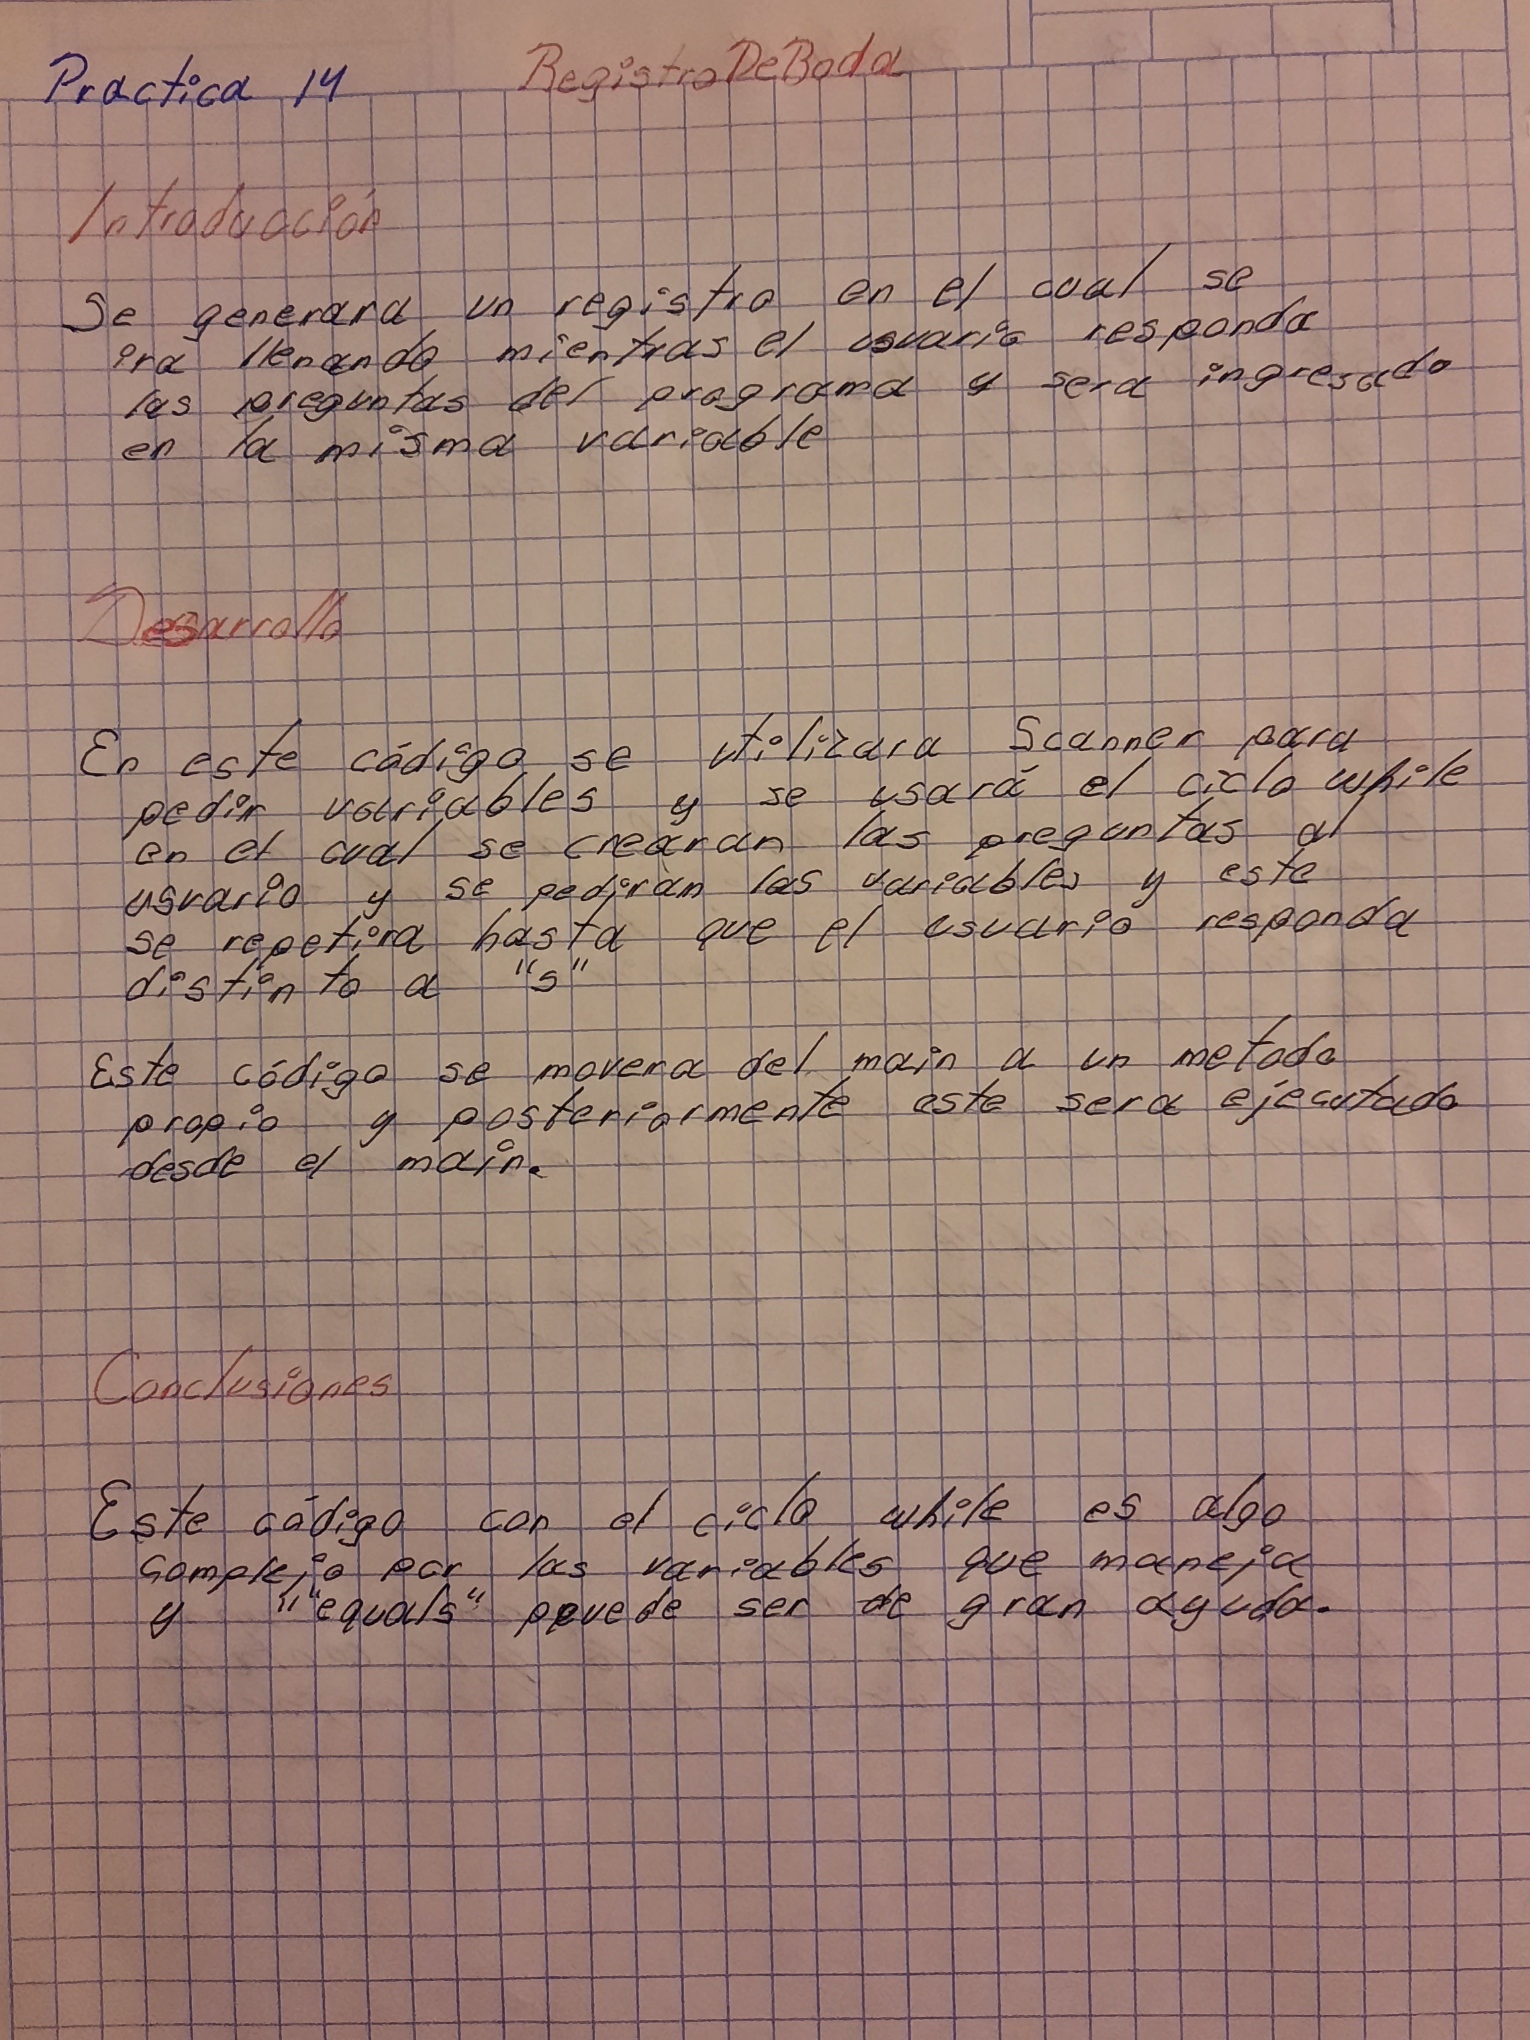 Practica 14
RegistroDeBoda
Introducción
Se generara un registro en el cual se
ira llenando mientras el usuario responda
las preguntas del programa y sera ingresado
en la misma variable
Desarrollo
En este código se utilizara Scanner para
pedir variables y se usará el ciclo while
en el cual se crearan las preguntas al
usuario y se pediran las variables y este
se repetira hasta que el usuario responda
distinto a "s"
Este código se movera del main a un metodo
propio y posteriormente este sera ejecutado
desde el main.
Conclusiones
Este código con el ciclo while es algo
complejo por las variables que maneja
y "equals" puede ser de gran ayuda.